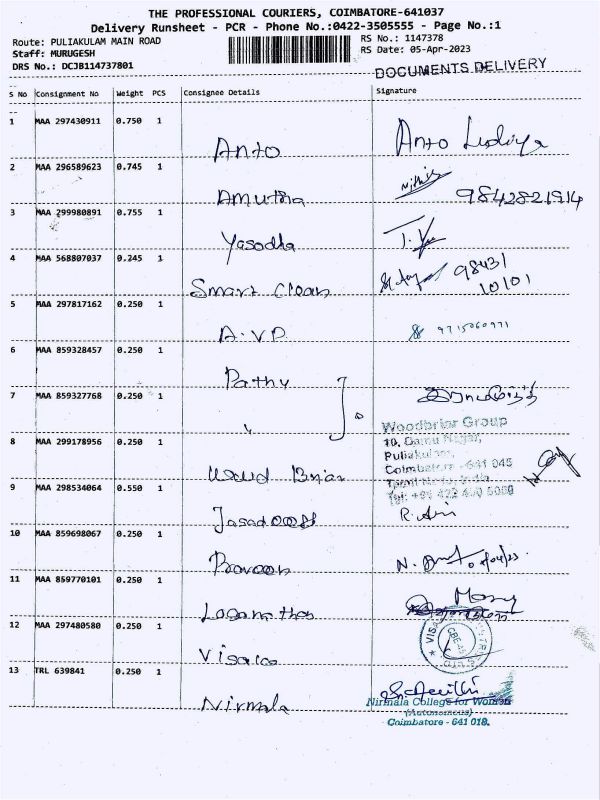 THE PROFESSIONAL COURIERS, COIMBATORE-641037
Delivery Runsheet - PCR - Phone No.:0422-3505555 - Page No.:1
Route: PULIAKULAM MAIN ROAD
RS No.: 1147378
Staff: MURUGESH
RS Date: 05-Apr-2023
DRS No.: DCJB114737801
DOCUMENTS DELIVERY
S No Consignment No Weight PCS Consignee Details Signature
1 MAA 297430911 0.750 1
Anto Anto
2 MAA 296589623 0.745 1
Amutha 9842821914
3 MAA 299980891 0.755 1
Yasodha
4 MAA 568807037 0.245 1
Smart Clean 98431
10101
5 MAA 297817162 0.250 1
A.V.P 9715060971
6 MAA 859328457 0.250 1
Pathy
7 MAA 859327768 0.250 1
"
Woodbriar Group
8 MAA 299178956 0.250 1
10, Damu Nagar,
Puliakulam,
Coimbatore - 641 045
Tamil Nadu, India
Wood Briar
9 MAA 298534064 0.550 1
10 MAA 859698067 0.250 1
Praveen
11 MAA 859770101 0.250 1
12 MAA 297480580 0.250 1
13 TRL 639841 0.250 1
Nirmala
Nirmala College for Women
(Autonomous)
Coimbatore - 641 018.